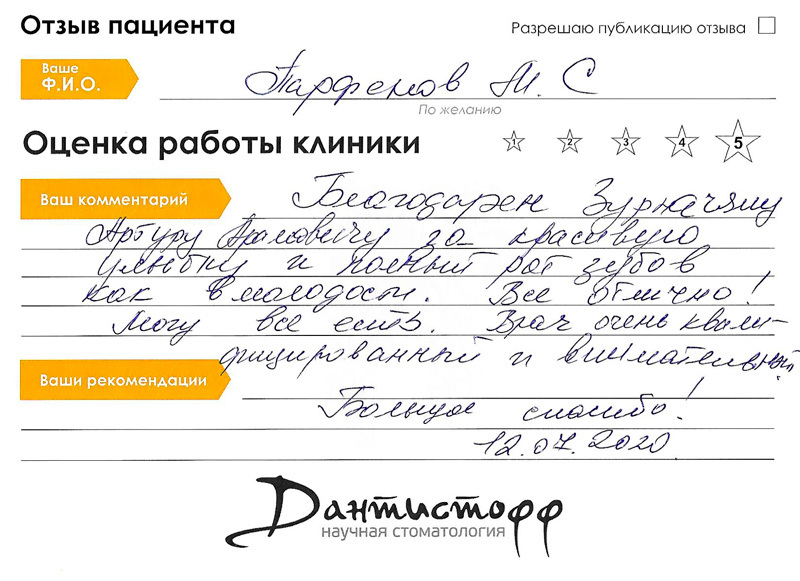 Отзыв пациента
Разрешаю публикацию отзыва
Ваше
Ф.И.О.
Парфенов М. С
По желанию
Оценка работы клиники
1 2 3 4 5
Ваш комментарий
Благодарен Зурначяну
Артуру Арамовичу за красивую
улыбку и полный рот зубов
как в молодости. Все отлично!
Могу все есть. Врач очень квали-
фицированный и внимательный
Ваши рекомендации
Большое спасибо!
12.07.2020
Дантистофф
научная стоматология